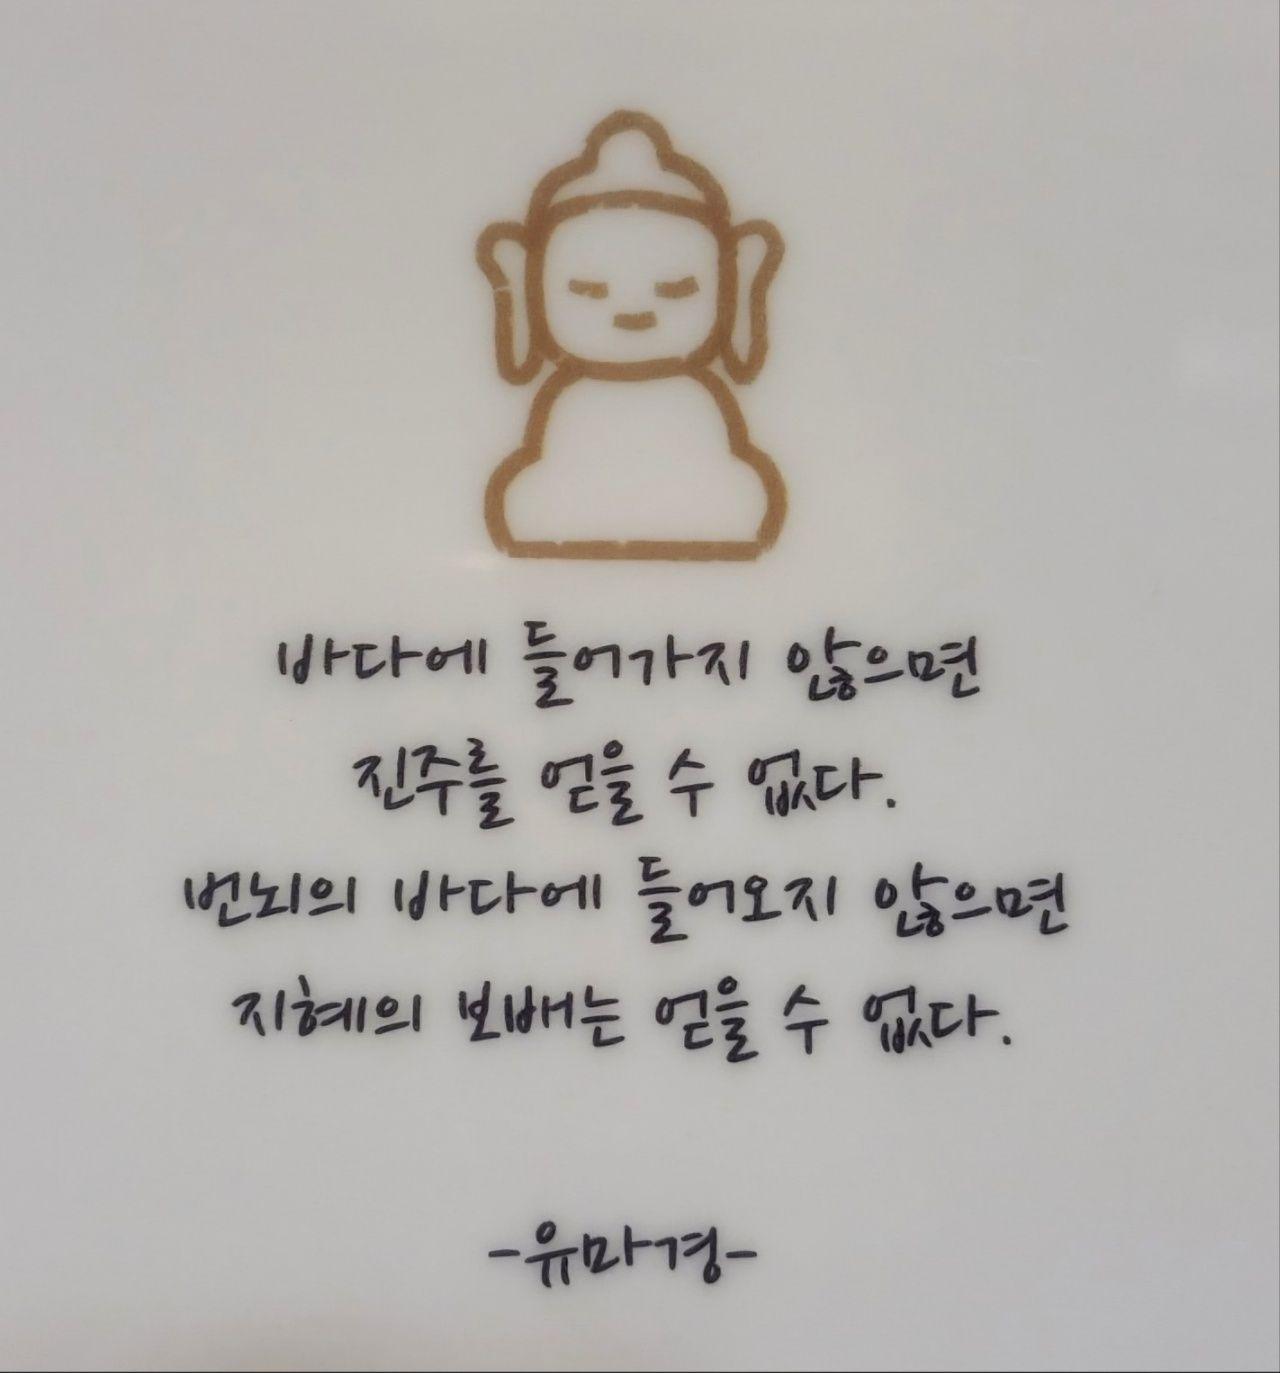 바다에 들어가지 않으면
진주를 얻을 수 없다.
번뇌의 바다에 들어오지 않으면
지혜의 보배는 얻을 수 없다.
-유마경-